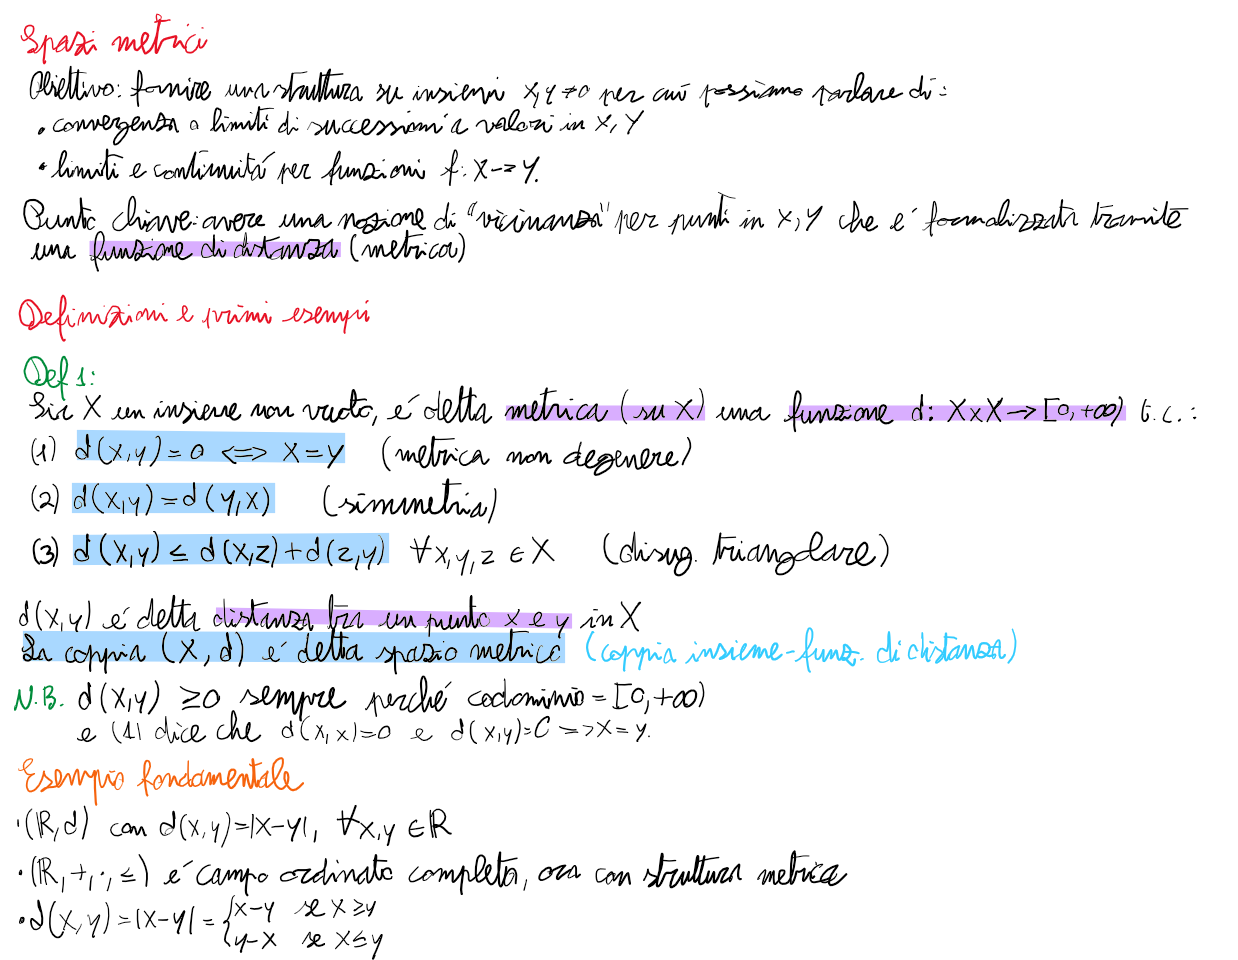 Spazi metrici
Obiettivo: fornire una struttura su insiemi X,Y ≠ 0 per cui possiamo parlare di:
• convergenza o limiti di successioni a valori in X,Y
• limiti e continuitá per funzioni f: X → Y.
Punto chiave: avere una nozione di "vicinanza" per punti in X,Y che é formalizzata tramite
una funzione di distanza (metrica)
Definizioni e primi esempi
Def 1:
Sia X un insieme non vuoto, é detta metrica (su X) una funzione d: X×X → [0,+∞) t.c.:
(1) d(x,y)=0 <=> x=y (metrica non degenere)
(2) d(x,y)=d(y,x) (simmetria)
(3) d(x,y) ≤ d(x,z)+d(z,y) ∀x,y,z ∈ X (disug. triangolare)
d(x,y) é detta distanza tra un punto x e y in X
La coppia (X,d) é detta spazio metrico (coppia insieme-funz. di distanza)
N.B. d(x,y) ≥0 sempre perché codominio=[0,+∞)
e (1) dice che d(x,x)=0 e d(x,y)=0 => x=y.
Esempio fondamentale
• (ℝ,d) con d(x,y)=|x-y|, ∀x,y ∈ ℝ
• (ℝ,+,·,≤) é campo ordinato completo, ora con struttura metrica
• d(x,y)=|x-y|= { x-y se x≥y
{ y-x se x≤y